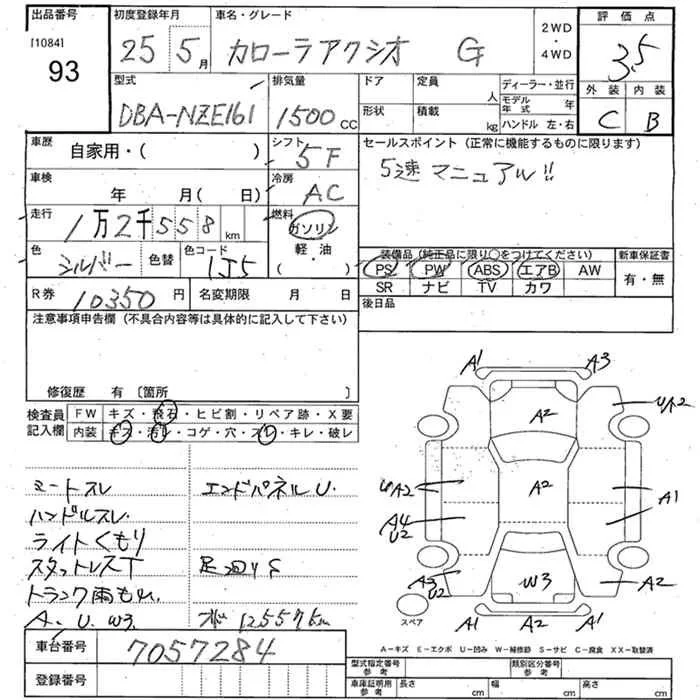 出品番号 初度登録年月 車名・グレード 2WD・4WD 評価点
[1084] 93 25 5月 カローラアクシオ G 3.5
型式 排気量 ドア 定員 人 ディーラー・並行 外装 内装
DBA-NZE161 1500CC 形状 積載 kg モデル年式 年 C B
ハンドル 左・右
車歴 自家用・( ) シフト 5F セールスポイント(正常に機能するものに限ります)
5速マニュアル!!
車検 年 月( 日) 冷房 AC
走行 1万2千558km 燃料 ガソリン
軽・油
( )
色 シルバー 色替 色コード 1J5
装備品(純正品に限り○をつけてください) 新車保証書
PS PW ABS エアB AW 有・無
SR ナビ TV カワ
R券 10350円 名変期限 月 日 後日品
注意事項申告欄(不具合内容等は具体的に記入して下さい)
修復歴 有〔箇所 〕
検査員記入欄 FW キズ・飛石・ヒビ割・リペア跡・X要
内装 キズ・汚レ・コゲ・穴・スレ・キレ・破レ
シートスレ エンドパネルU.
ハンドルスレ
ライトくもり
スタットレスT 足回りS
トランク雨もれ
A. U. W3 12557km
A1 A3
A2 UA2
UA2 A2 A1
A4
U2
A3 W3 A2
U2
A1 A2 A1
スペア
A-キズ E-エクボ U-凹み W-補修跡 S-サビ C-腐食 XX-取替済
車台番号 7057284
登録番号
型式指定番号 参考 類別区分番号 参考
車庫証明用 参考 長さ cm 幅 cm 高さ cm